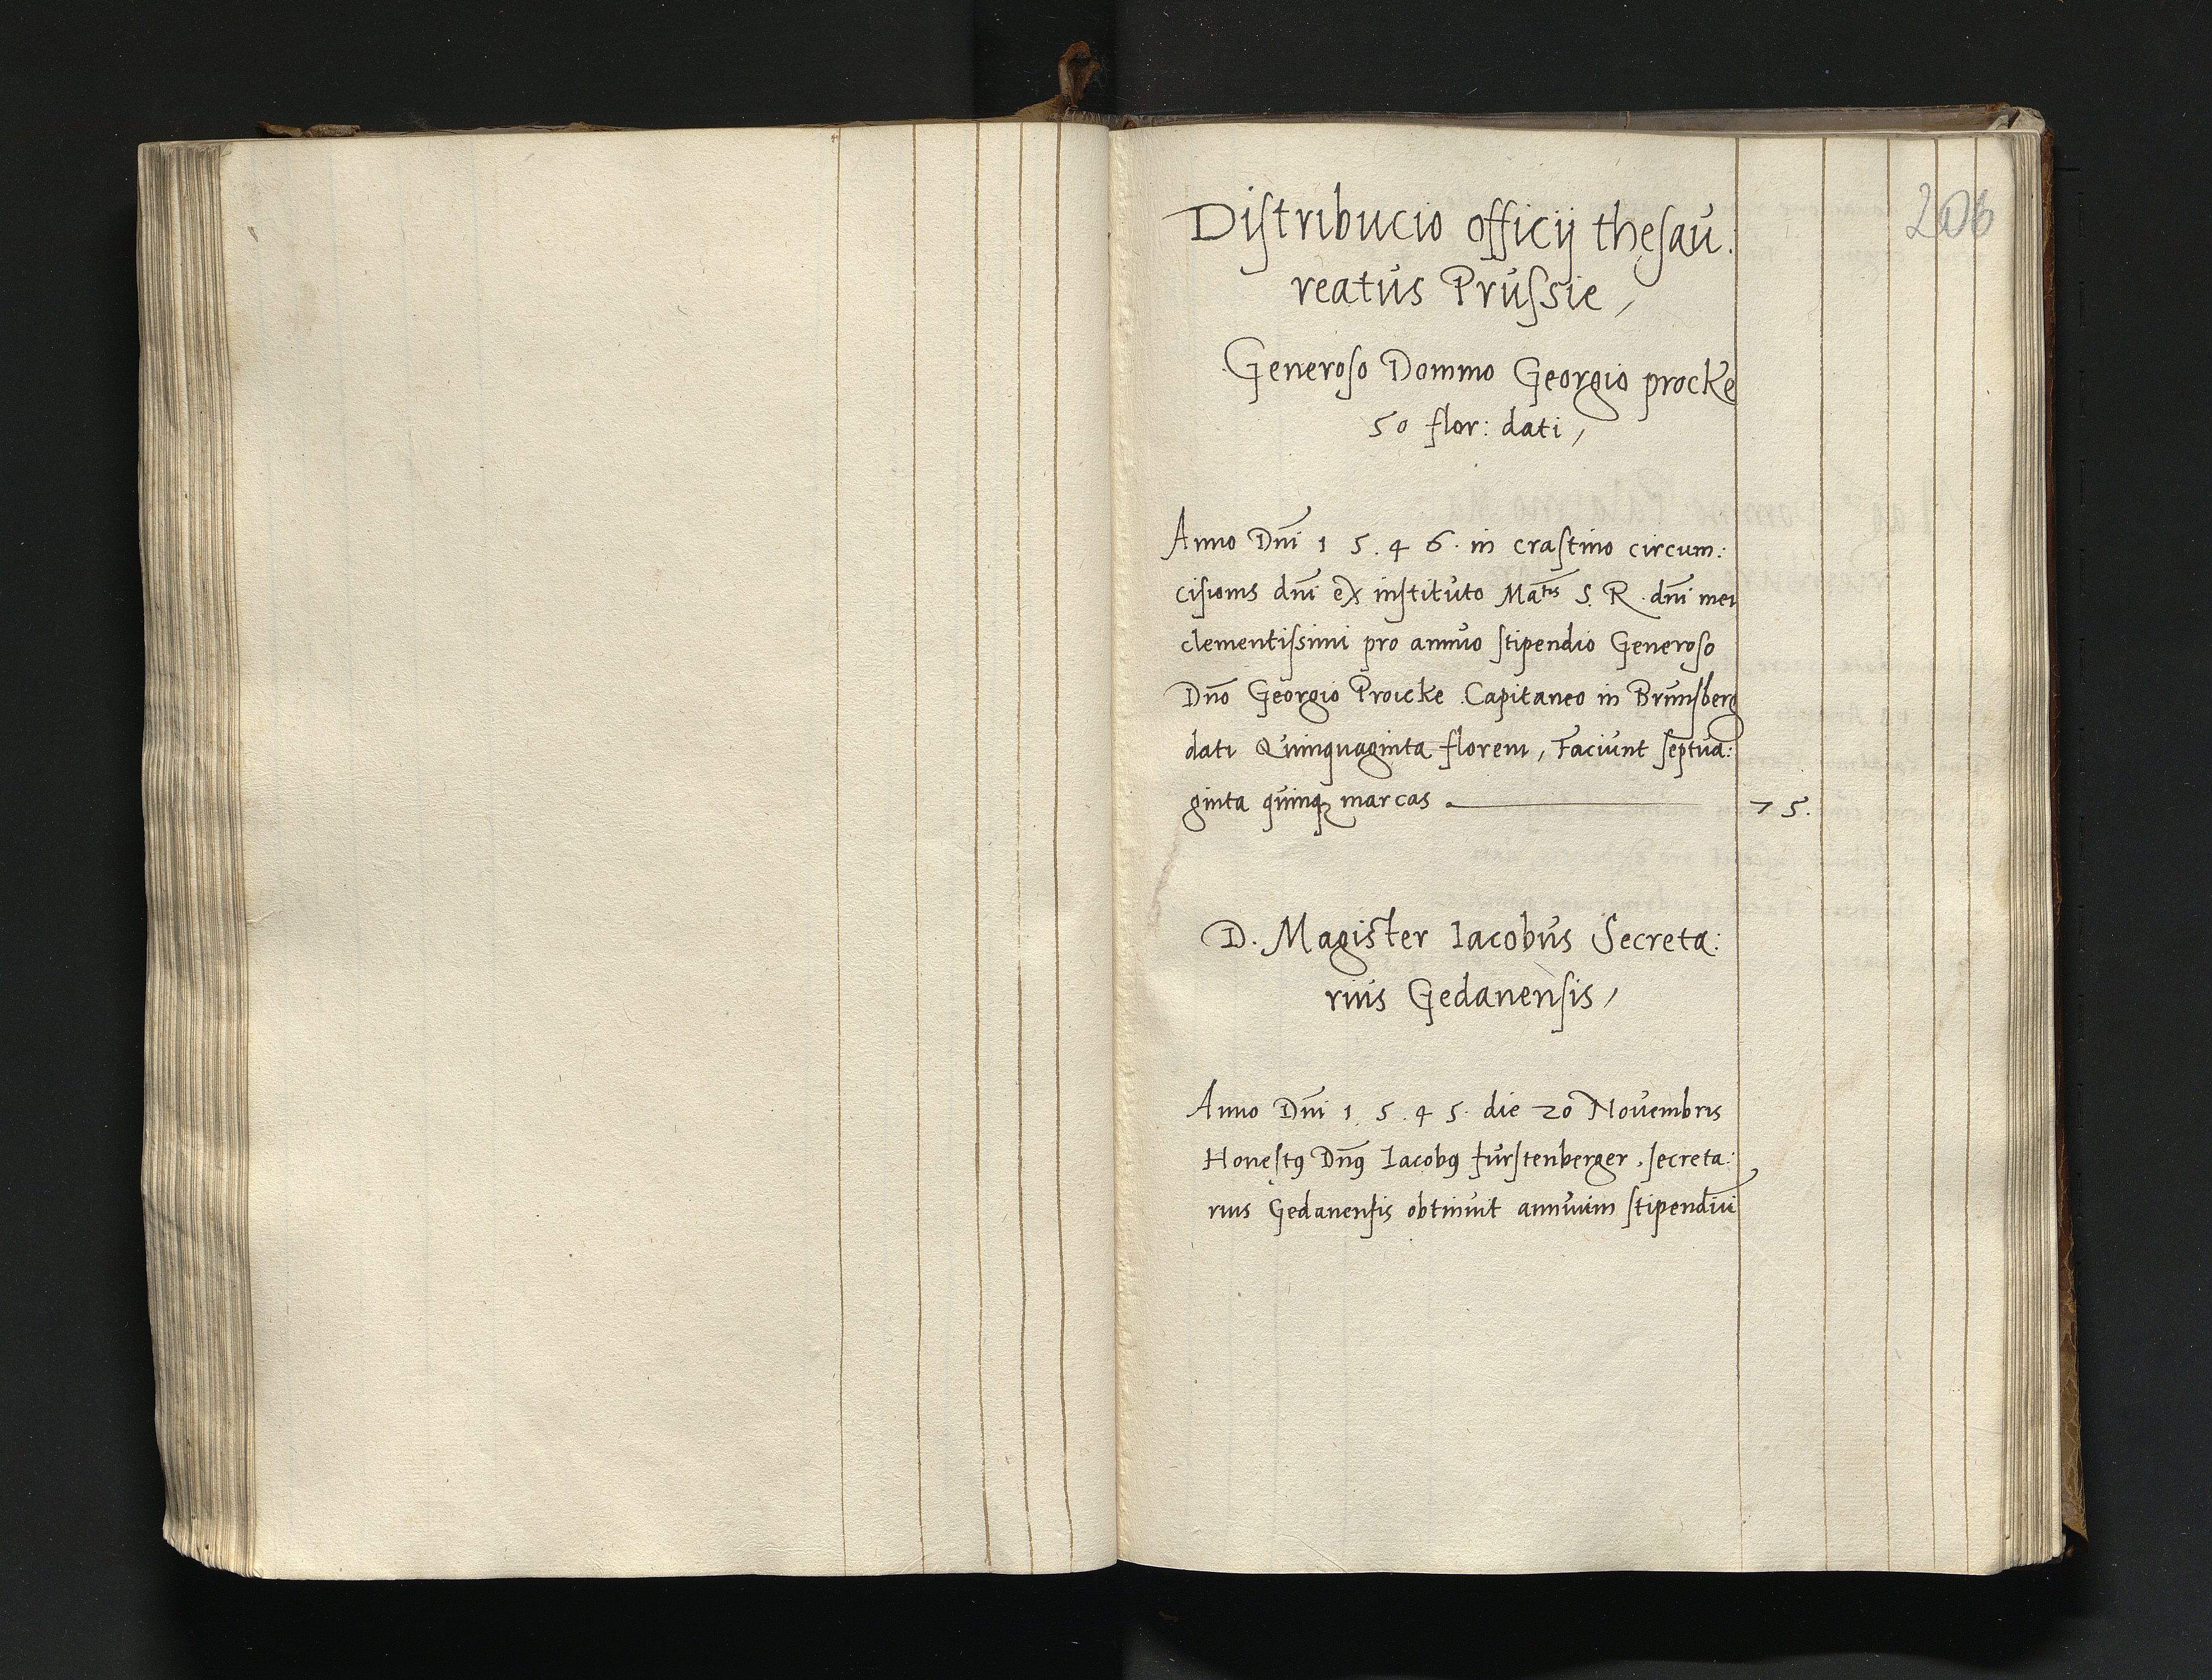 206
Distribucio officij thesau:
reatus Prussie,
Generoso Domino Georgio procke
50 flor: dati,
Anno Dni 1 5. 4 6. in crastino circum:
cisionis dni ex instituto Matis S. R. dni mei
clementissimi pro annuo stipendio Generoso
Dno Georgio Proicke Capitaneo in Brunsberg
dati Quinquaginta floreni, Faciunt septua:
ginta quinq marcas . 75.
D. Magister Iacobus Secreta:
rius Gedanensis,
Anno Dni 1. 5. 4 5. die 20 Novembris
Honestꝯ Dnꝯ Iacobꝯ furstenberger, secreta:
rius Gedanensis obtinuit annuum stipendiu